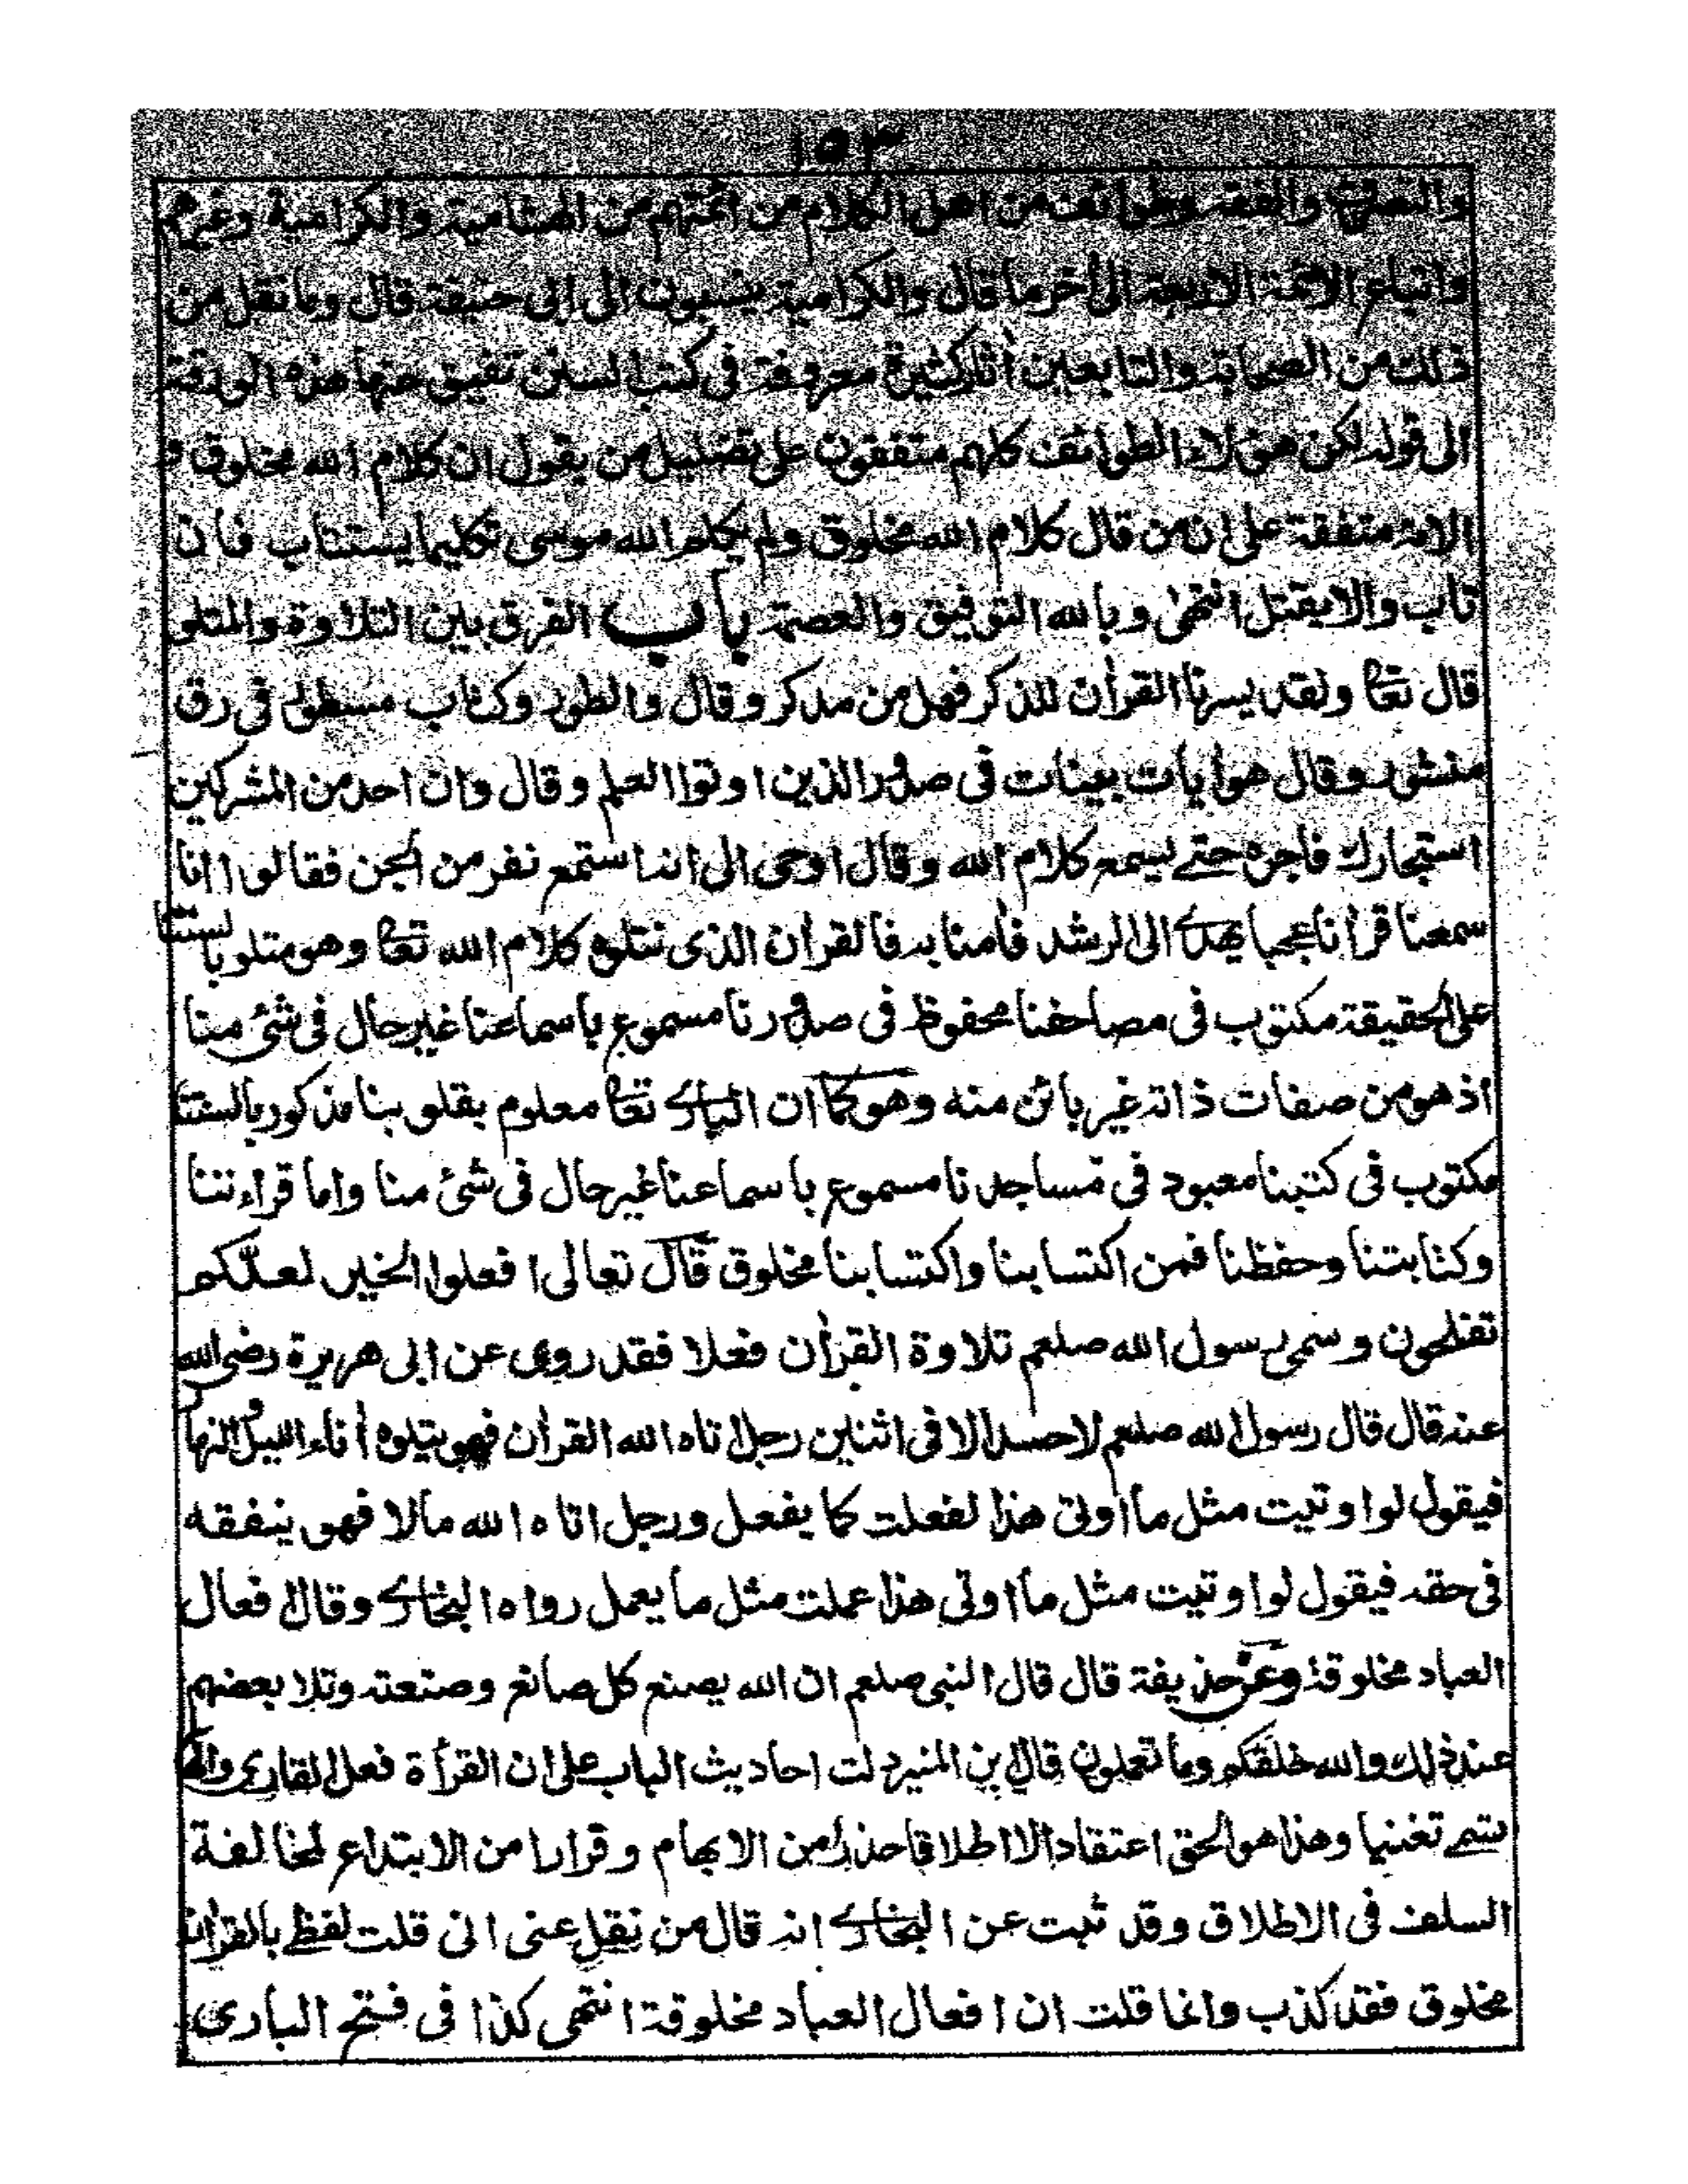 ١٥٣
والتصوف والفقه وطوائف من اهل الكلام من ائمتهم من الهشامية والكرامية وغيرهم
واتباع الائمة الاربعة الى أخر ما قال والكرامية ينسبون الى ابى حنيفة قال وما نقل من
ذلك من الصحابة والتابعين أثار كثيرة معروفة فى كتب السنن تضيق عنها هذه الورقة
الى قوله لكن هؤلاء الطوائف كلهم متفقون على تضليل من يقول ان كلام الله مخلوق و
الامة متفقة على ان من قال كلام الله مخلوق ولم يكلم الله موسى تكليما يستتاب فان
تاب والا يقتل انتهى وبالله التوفيق والعصمة باب الفرق بين التلاوة والمتلو
قال تعا ولقد يسرنا القرأن للذكر فهل من مدكر وقال والطور وكتاب مسطور فى رق
منشور وقال هو أيات بينات فى صدور الذين اوتوا العلم وقال وان احد من المشركين
استجارك فاجره حتے يسمع كلام الله وقال اوحى الى انه استمع نفر من الجن فقالوا انا
سمعنا قرأنا عجبا يهدے الى الرشد فأمنا به فالقرأن الذى نتلوه كلام الله تعا وهو متلو بالسنتنا
على الحقيقة مكتوب فى مصاحفنا محفوظ فى صدورنا مسموع باسماعنا غير حال فى شئ منا
اذ هو من صفات ذاته غير بائن منه وهو كما ان البارے تعا معلوم بقلوبنا مذكور بالسنتنا
مكتوب فى كتبنا معبود فى مساجدنا مسموع باسماعنا غير حال فى شئ منا واما قراءتنا
وكتابتنا وحفظنا فمن اكتسابنا واكتسابنا مخلوق قال تعالى افعلوا الخير لعلّكم
تفلحون وسمى رسول الله صلعم تلاوة القرأن فعلا فقد روى عن ابى هريرة رضى الله
عنه قال قال رسول الله صلعم لا حسد الا فى اثنين رجل اتاه الله القرأن فهو يتلوه أناء الليل والنهار
فيقول لو اوتيت مثل ما أوتى هذا لفعلت كما يفعل ورجل اتاه الله مالا فهو ينفقه
فى حقه فيقول لو اوتيت مثل ما اوتى هذا عملت مثل ما يعمل رواه البخارے وقال افعال
العباد مخلوقة وعن حذيفة قال قال النبى صلعم ان الله يصنع كل صانع وصنعته وتلا بعضهم
عند ذلك والله خلقكم وما تعملون قال بن المنير دلت احاديث الباب على ان القرأة فعل القارى وانها
تسمے تغنيا وهذا هو الحق اعتقادا لا اطلاقا حذرا من الايهام وفرارا من الابتداع لمخالفة
السلف فى الاطلاق وقد ثبت عن البخارے انه قال من نقل عنى انى قلت لفظے بالقرأن
مخلوق فقد كذب وانما قلت ان افعال العباد مخلوقة انتهى كذا فى فتح البارى